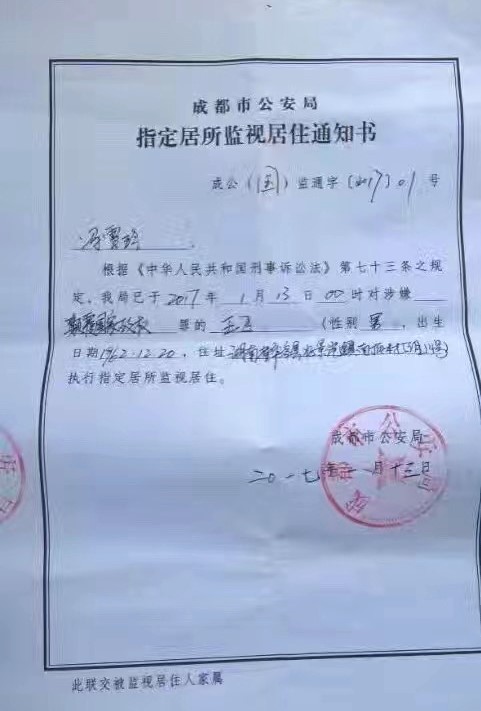 成都市公安局
指定居所监视居住通知书
成公（国）监通字〔2017〕01号
冯
根据《中华人民共和国刑事诉讼法》第七十三条之规
定，我局已于2017年1月13日00时对涉嫌
颠覆国家政权罪的王（性别男，出生
日期1962.12.20，住址湖南省
执行指定居所监视居住。
成都市公安局
二〇一七年一月十三日
此联交被监视居住人家属